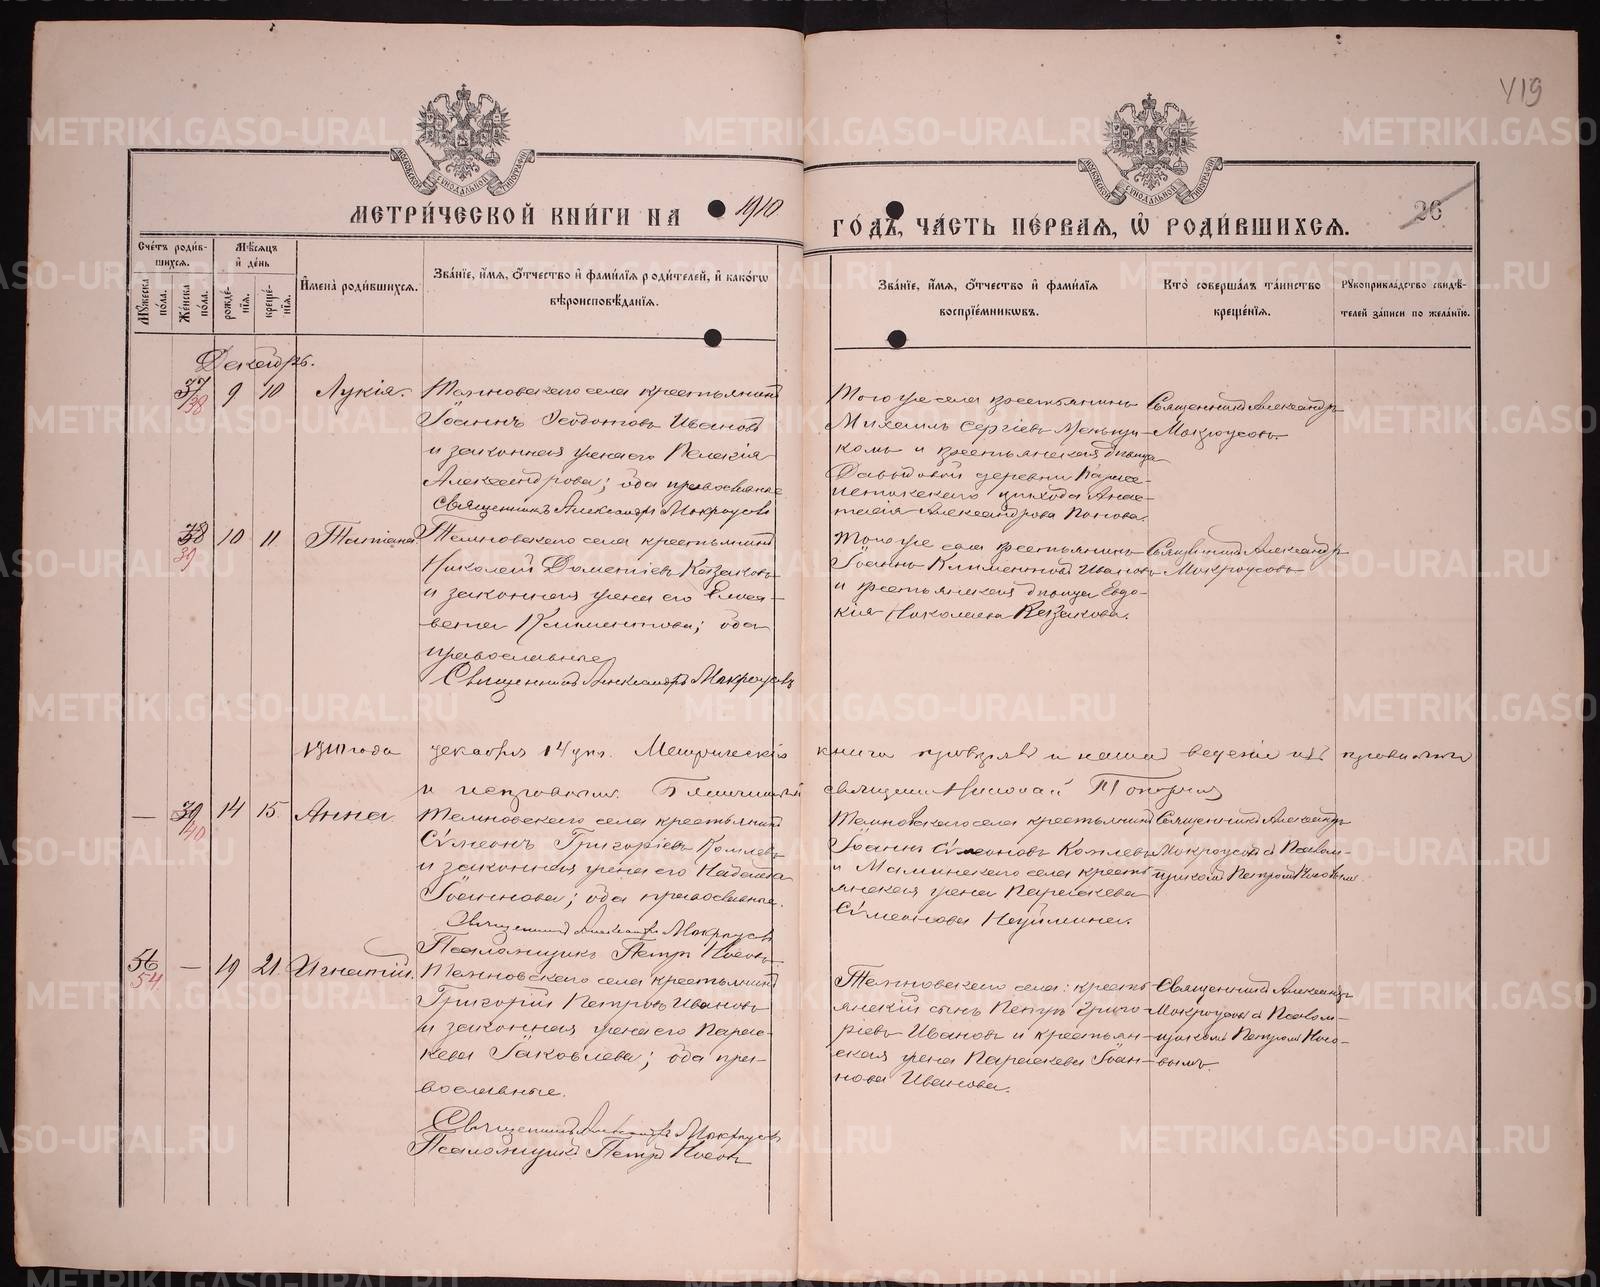 419
МЕТРИ́ЧЕСКОЙ КНИ́ГИ НА 1910 ГО́ДЪ, ЧА́СТЬ ПЕ́РВАЯ, Ѡ҆ РОДИ́ВШИХСЯ.
26
Сче́тъ роди́в-
шихся.
Мꙋ́жеска по́ла.
Же́нска по́ла.
Мѣ́сяцъ и҆ де́нь
рожде́-
нїя.
креще́-
нїя.
И҆мена̀ роди́вшихся.
Зва́нїе, и҆́мя, ѻ҆́тчество и҆ фами́лїя роди́телей, и҆ како́гѡ
вѣроисповѣ́данїя.
Зва́нїе, и҆́мя, ѻ҆́тчество и҆ фами́лїя
воспрїе́мникѡвъ.
Кто̀ соверша́лъ та́инство
креще́нїя.
Рꙋкоприкла́дство свидѣ́-
телей за́писи по жела́нїю.
Декабрь.
37
38
9
10
Лукія.
Темновскаго села крестьянинъ
Іоаннъ Ѳеодотовъ Ивановъ
и законная жена его Пелагія
Александрова; оба православные
Священникъ Александръ Мокроусовъ
Того же села крестьянинъ
Михаилъ Сергіевъ
и крестьянская дѣвица
деревни
прихода
Александрова Попова.
Священникъ Александръ
Мокроусовъ
38
39
10
11
Татіана.
Темновскаго села крестьянинъ
Николай Дометіевъ Казаковъ
и законная жена его Елиса-
вета Климентова; оба
православные
Священникъ Александръ Мокроусовъ
Того же села крестьянинъ
Іоаннъ Климентовъ Ивановъ
и крестьянская дѣвица Евдо-
кія Николаева Казакова.
Священникъ Александръ
Мокроусовъ
1910 года декабря 14 дня. Метрическія книги провѣрялъ и нашелъ веденіе ихъ правильнымъ
и исправнымъ. Благочинный священникъ Николай Топорковъ
—
39
40
14
15
Анна
Темновскаго села крестьянинъ
Сѵмеонъ Григоріевъ Комлевъ
и законная жена его Надежда
Іоаннова; оба православные.
Священникъ Александръ Мокроусовъ
Псаломщикъ Петръ Носовъ
Темновскаго села крестьянинъ
Іоаннъ Сѵмеоновъ Комлевъ
и Маминскаго села кресть-
янская жена Параскева
Сѵмеонова Неуймина.
Священникъ Александръ
Мокроусовъ съ Псалом-
щикомъ Петромъ Носовымъ.
56
54
—
19
21
Игнатій.
Темновскаго села крестьянинъ
Григорій Петровъ Ивановъ
и законная жена его Парас-
кева Іаковлева; оба пра-
вославные.
Священникъ Александръ Мокроусовъ
Псаломщикъ Петръ Носовъ
Темновскаго села: кресть-
янскій сынъ Петръ Григо-
ріевъ Ивановъ и крестьян-
ская жена Параскева Іоан-
нова Иванова.
Священникъ Александръ
Мокроусовъ съ Псалом-
щикомъ Петромъ Носо-
вымъ.
METRIKI.GASO-URAL.RU